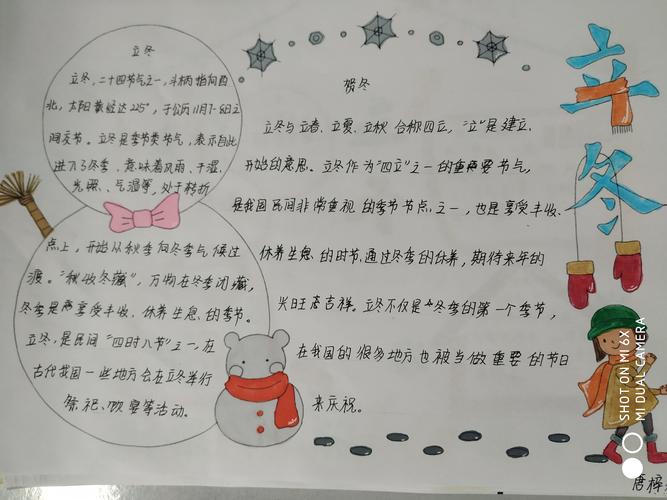 立冬
立冬，二十四节气之一，斗柄指向西
北，太阳黄经达225°，于公历11月7-8日之
间交节。立冬是季节类节气，表示自此
进入了冬季，意味着风雨、干湿、
光照、气温等，处于转折
点上，开始从秋季向冬季气候过
渡。“秋收冬藏”，万物在冬季闭藏，
冬季是享受丰收、休养生息的季节。
立冬，是民间“四时八节”之一，在
古代我国一些地方会在立冬举行
祭祀、饮宴等活动。
贺冬
立冬与立春、立夏、立秋合称四立，“立”是建立、
开始的意思。立冬作为“四立”之一的重要节气，
是我国民间非常重视的季节节点之一，也是享受丰收、
休养生息的时节，通过冬季的休养，期待来年的
兴旺吉祥。立冬不仅是冬季的第一个季节，
在我国的很多地方也被当做重要的节日
来庆祝。
立冬
SHOT ON MI 6X
MI DUAL CAMERA
唐梓